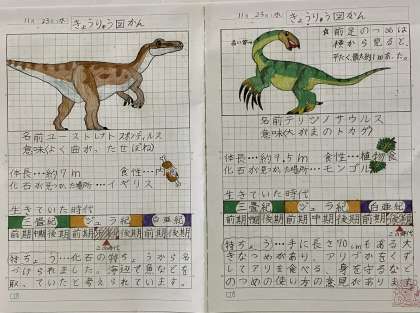 11月 23日(水)
きょうりゅう図かん
名前ユーストレプトスポンディルス
意味(よく曲がったせぼね)
体長…約7m 食性…肉
化石が見つかった場所…イギリス
生きていた時代
三畳紀 ジュラ紀 白亜紀
前期 中期 後期 前期 後期
特ちょう…化石の特ちょうから名
づけられました。海辺で魚などを
取っていたと考えられています。
11月 23日(水)
きょうりゅう図かん
前足のつめは
横から見ると、
平たく最大約1mあった。
長い首
名前テリジノサウルス
意味(大がまのトカゲ)
体長…約9,5m 食性…植物食
化石が見つかった場所…モンゴル
生きていた時代
三畳紀 ジュラ紀 白亜紀
前期 中期 後期 前期 中期 後期 前期 後期
特ちょう…手に長さ70cmもある大
きなつめがあり、アリづかをくず
してアリを食べる、身を守るなど
のつめの使い方の意見があります